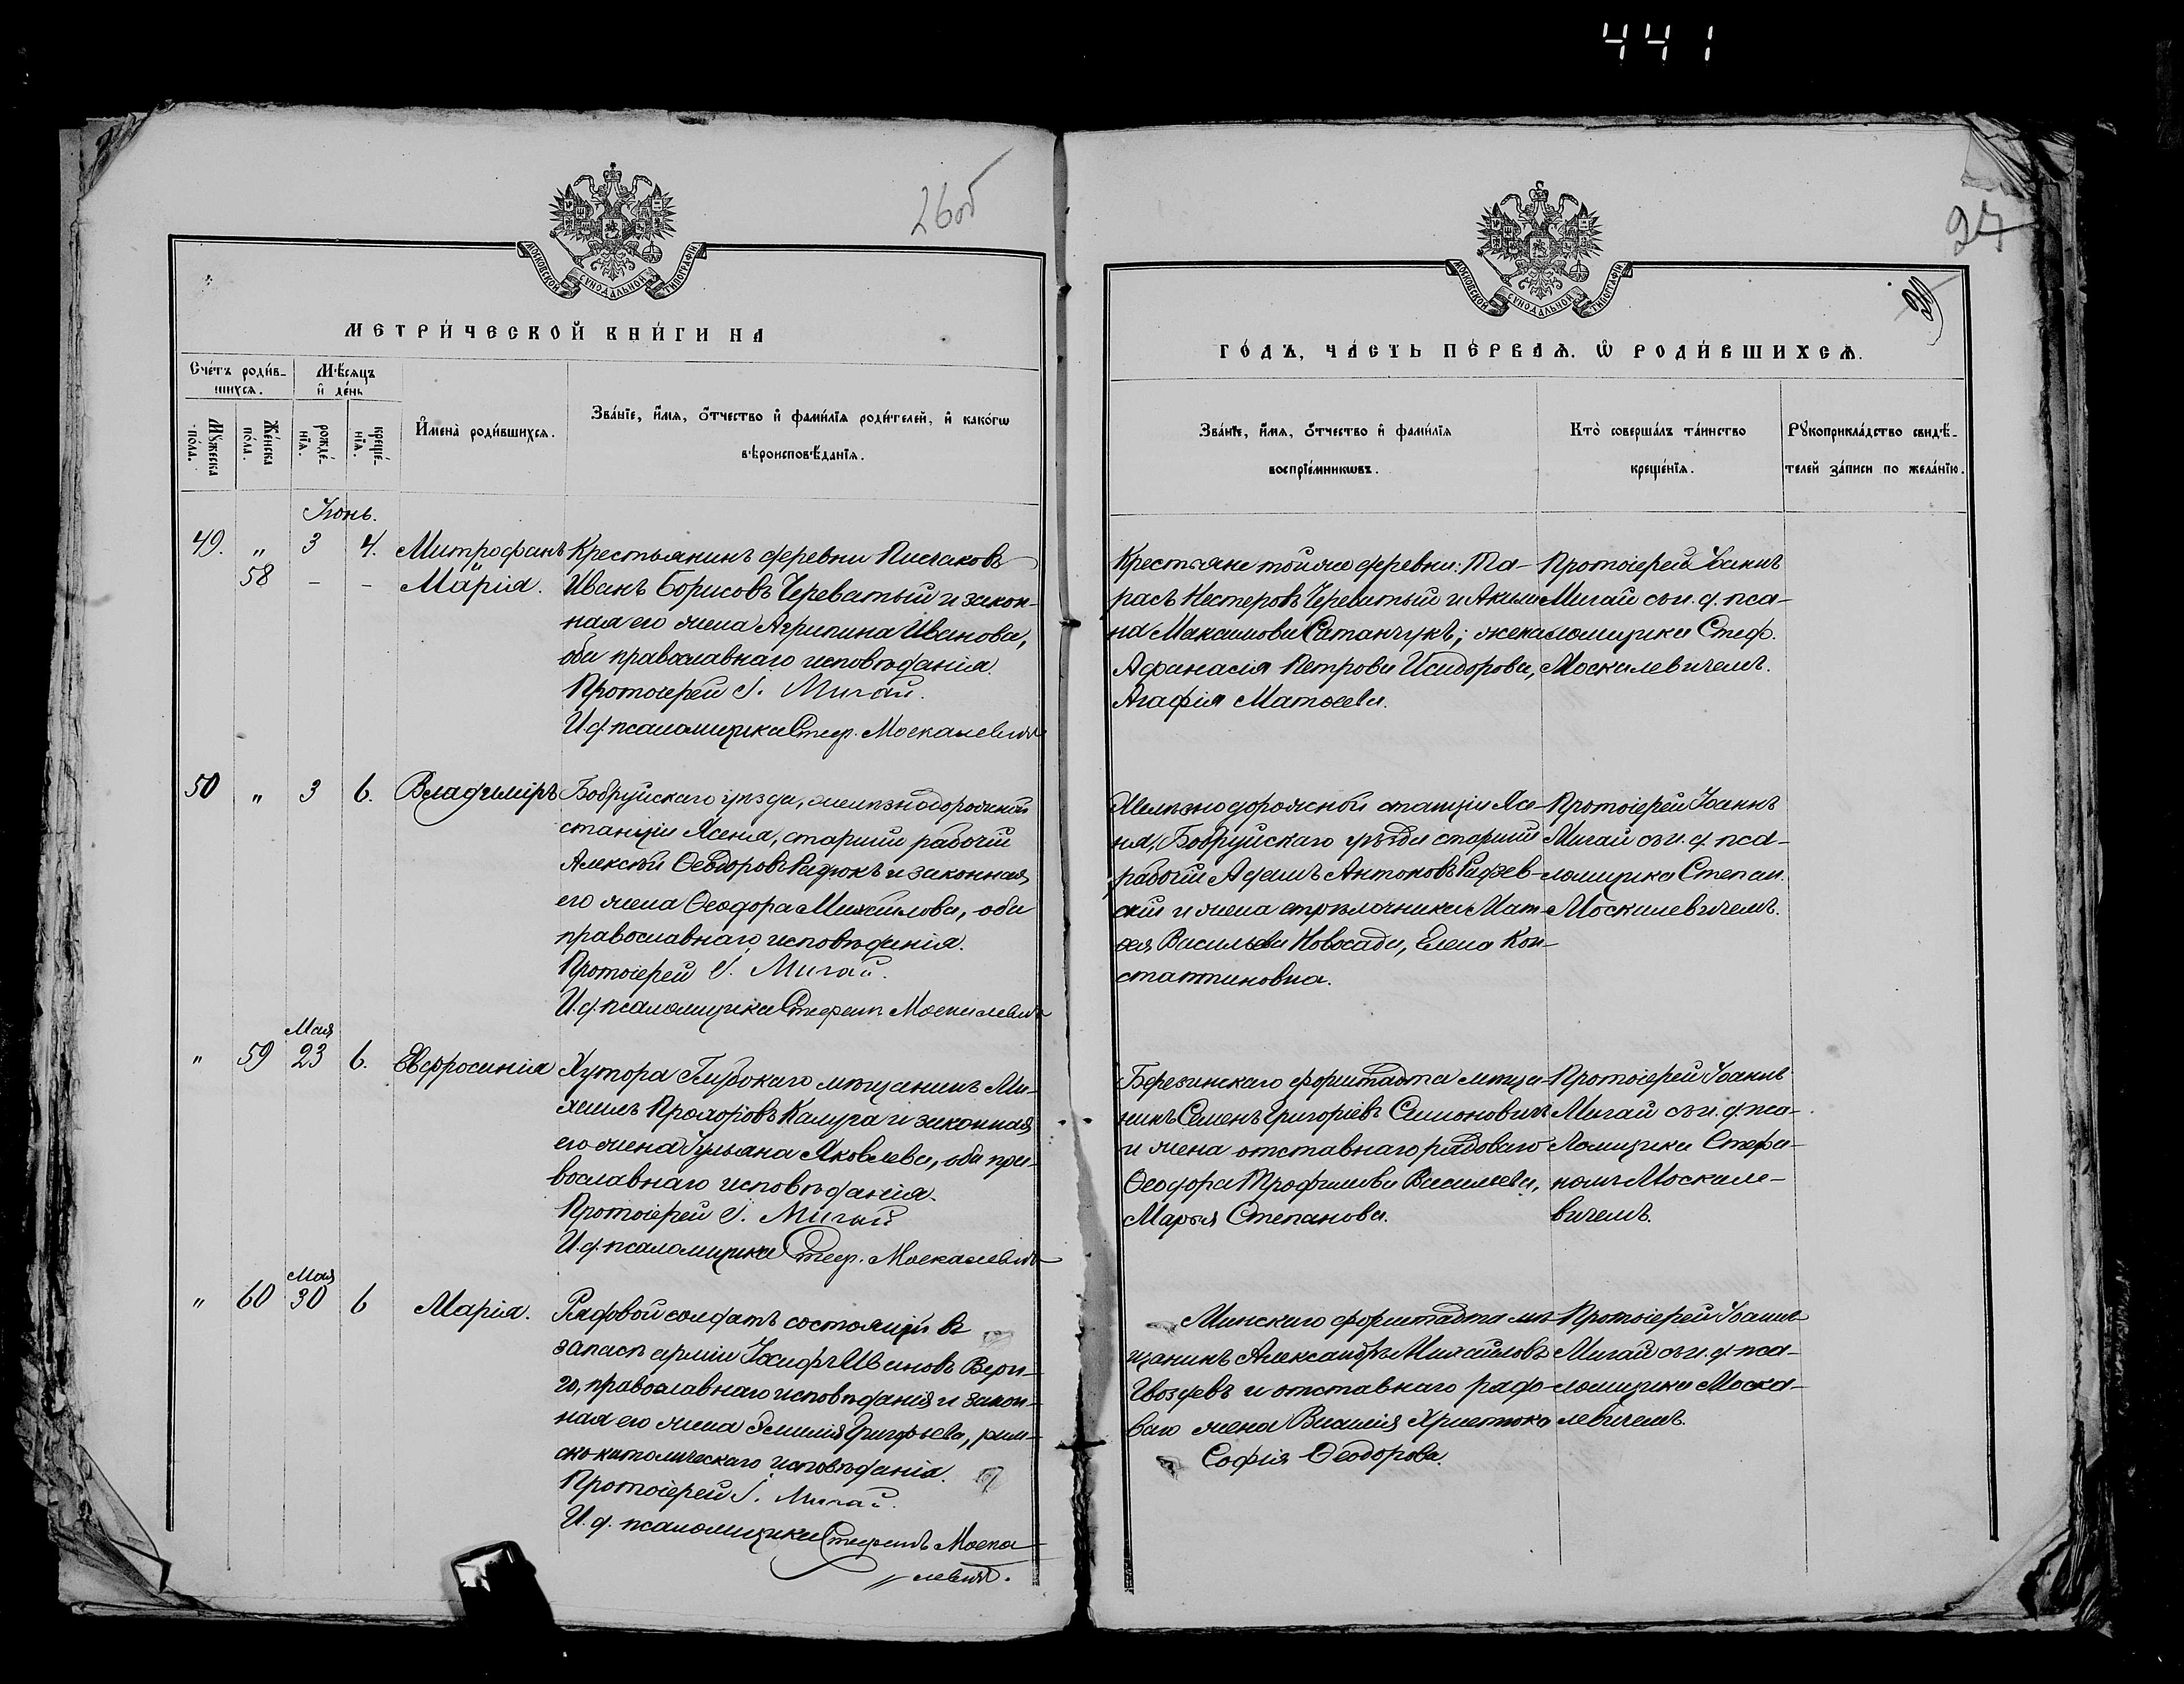 441
26об
МОСКОВСКОЙ СУНОДАЛЬНОЙ ТИПОГРАФІИ
МЕТРИ́ЧЕСКОЙ КНИ́ГИ НА
Сче́тъ роди́в-
шихся.
Мѣ́сяцъ
и҆ де́нь
Мꙋ́жеска
по́ла.
Же́нска
по́ла.
рожде́-
нїѧ.
креще́-
нїѧ.
И҆мена̀ роди́вшихсѧ.
Зва́нїе, и҆́мѧ, ѻ҆́тчество и҆ фами́лїѧ роди́телей, и҆ како́гѡ
вѣроисповѣ́данїѧ.
Іюнь.
49. „ 3 4. Митрофанъ
58 – – Марія.
Крестьянинъ деревни Пинчаковъ
Иванъ Борисовъ Череватый и закон-
ная его жена Агрипина Иванова,
оба православнаго исповѣданія.
Протоіерей І. Мигай.
И.д. псаломщика Стеф. Москалевичъ
50 „ 3 6. Владиміръ
Бобруйскаго уѣзда, желѣзнодорожной
станціи Ясеня, старшій рабочій
Алексѣй Ѳеодоровъ Радюкъ и законная
его жена Ѳеодора Михайлова, оба
православнаго исповѣданія.
Протоіерей І. Мигай.
И.д. псаломщика Стефанъ Москалевичъ
Мая
„ 59 23 6. Евфросинія
Хутора Глубокаго мѣщанинъ Ми-
хаилъ Прохоровъ Калуга и законная
его жена Іульана Яковлева, оба пра-
вославнаго исповѣданія.
Протоіерей І. Мигай
И.д. псаломщика Стеф. Москалевичъ
Мая
„ 60 30 6 Марія.
Рядовой солдатъ состоящій въ
запасѣ арміи Іосифъ Ивановъ Вери-
го, православнаго исповѣданія и закон-
ная его жена Эмилія Григорьева, рим-
ско-католическаго исповѣданія.
Протоіерей І. Мигай.
И.д. псаломщика Стефанъ Моска-
левичъ.
27
МОСКОВСКОЙ СУНОДАЛЬНОЙ ТИПОГРАФІИ
ГО́ДЪ, ЧА́СТЬ ПЕ́РВАѦ. Ѡ҆ РОДИ́ВШИХСѦ.
Зва́нїе, и҆́мѧ, ѻ҆́тчество и҆ фами́лїѧ
воспрїе́мникѡвъ.
Кто̀ соверша́лъ та́инство
креще́нїѧ.
Рꙋкоприкла́дство свидѣ́-
телей за́писи по жела́нїю.
Крестьяне той же деревни: Та-
расъ Нестеровъ Череватый и Акили-
на Максимова Сатанчукъ; жена
Афанасія Петрова Исидорова,
Агафія Матѳеева.
Протоіерей Іоаннъ
Мигай съ и.д. пса-
ломщика Стеф.
Москалевичемъ.
Желѣзнодорожной станціи Ясе-
ня, Бобруйскаго уѣзда старшій
рабочій Адамъ Антоновъ Радзев-
скій и жена стрѣлочника Мат-
ѳея Васильева Новосада, Елена Кон-
стантиновна.
Протоіерей Іоаннъ
Мигай съ и.д. пса-
ломщика Степан.
Москалевичемъ.
Березинскаго форштадта мѣща-
нинъ Семенъ Григоріевъ Симоновичъ
и жена отставнаго рядоваго
Ѳеодора Трофимова Васильева,
Марѳа Степанова.
Протоіерей Іоаннъ
Мигай съ и.д. пса-
ломщика Стефа-
номъ Москале-
вичемъ.
Минскаго форштадта мѣ-
щанинъ Александръ Михайловъ
Гвоздевъ и отставнаго рядо-
ваго жена Василія Христюка
Софія Ѳеодорова.
Протоіерей Іоаннъ
Мигай съ и.д. пса-
ломщика Моска-
левичемъ.